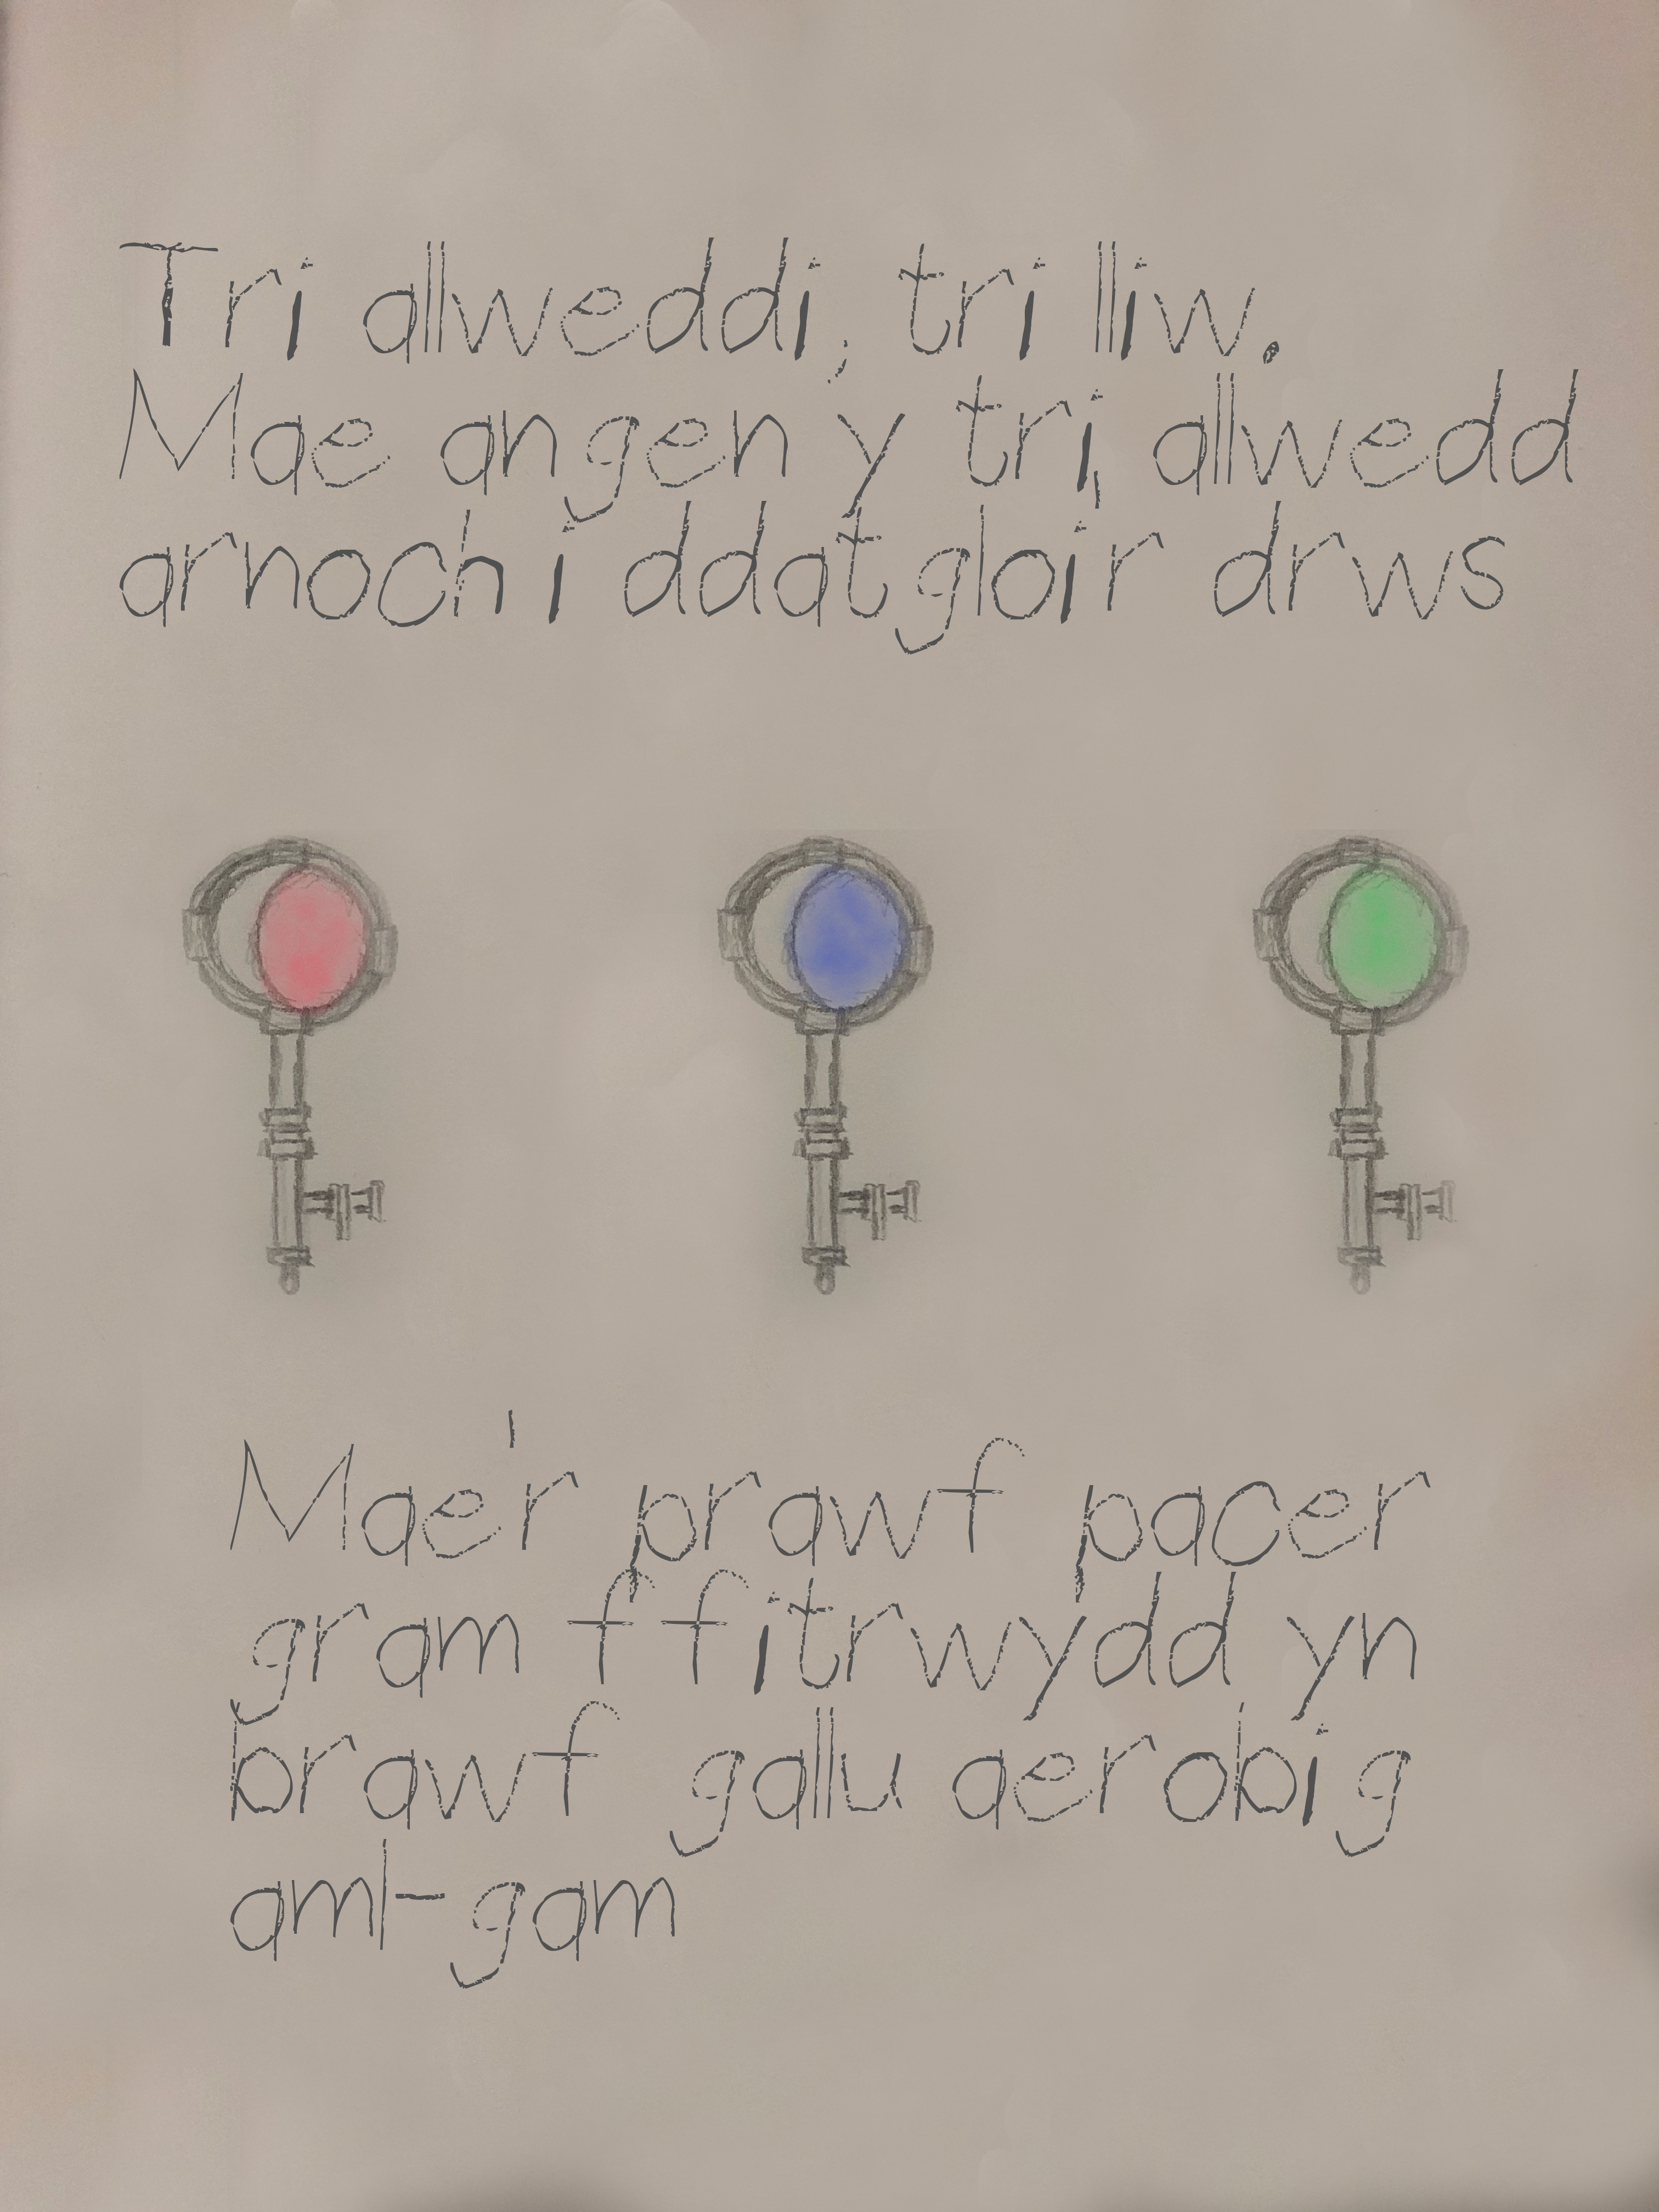 Tri allweddi, tri lliw.
Mae angen y tri, allwedd
arnoch i ddatgloir drws
Mae'r prawf pacer
gram ffitrwydd yn
brawf gallu aerobig
aml-gam